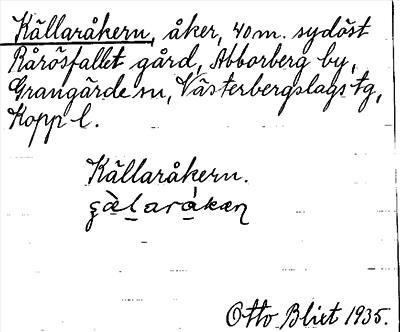 Källaråkern, åker, 40 m. sydöst
Rårösfallet gård, Abborberg by,
Grangärde sn, Västerbergslags tg,
Kopp l.
Källaråkern.
Otto Blixt 1935.